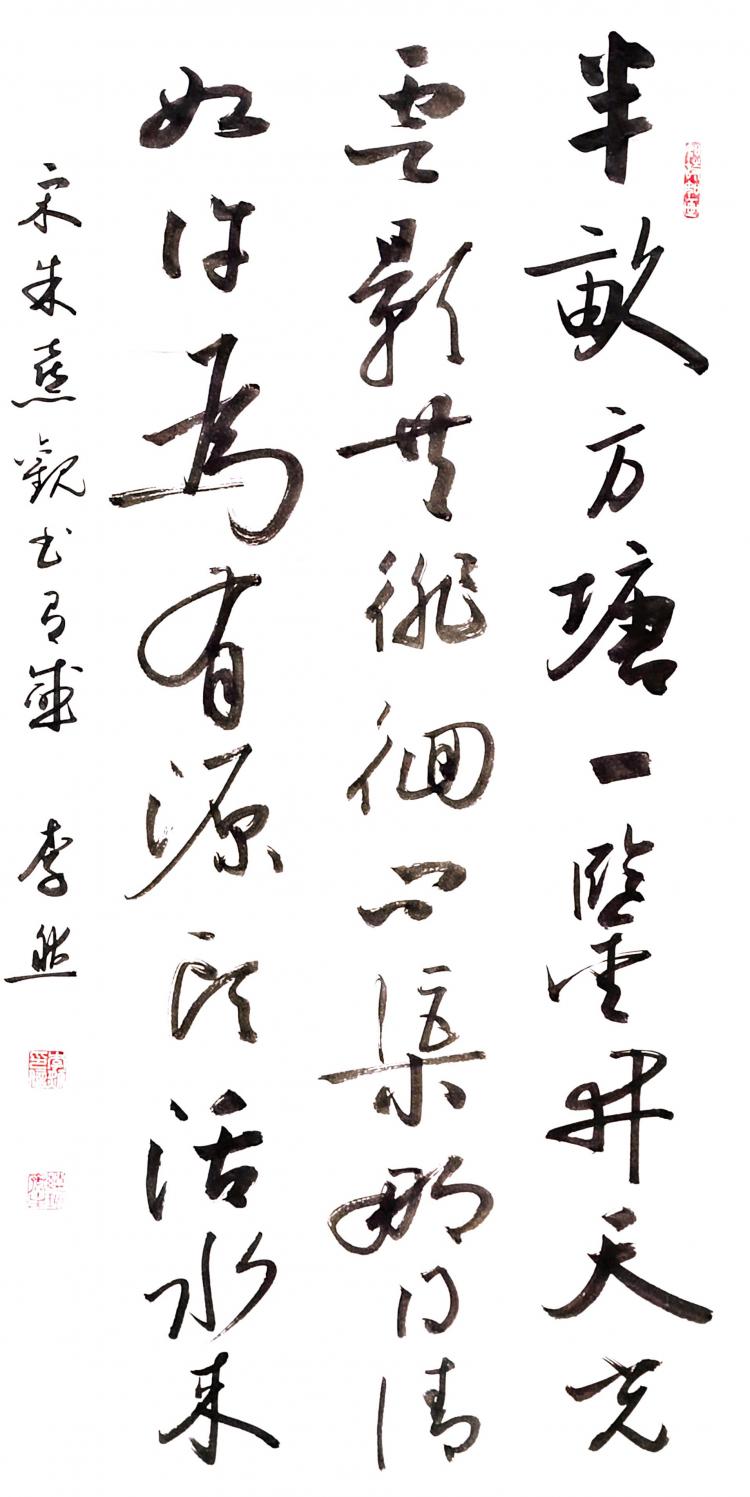 半畝方塘一鑒開天光
雲影共徘徊問渠那得清
如許為有源頭活水來
宋朱熹觀書有感 李然